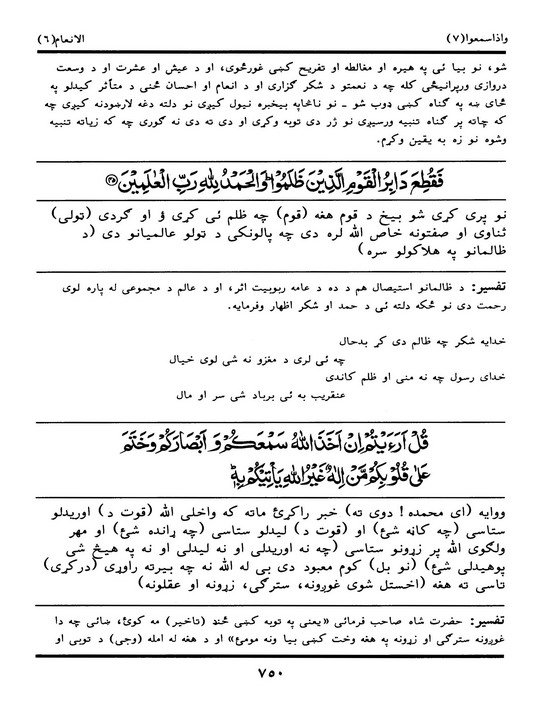 واذاسمعوا(٧)
الانعام(٦)
شو، نو بیا ئی په هیره او مغالطه او تفریح کښی غورځوی، او د عیش او عشرت او د وسعت
دروازی ورپرانیځی کله چه د نعمتو د شکر گزاری او د انعام او احسان څنی د متأثر کیدلو په
ځای ښه په گناه کښی ډوب شو ـ نو ناڅاپه بیخبره نیول کیږی نو دلته دغه لارښودنه کیږی چه
که چاته پر گناه تنبیه ورسیږی نو ژر دی توبه وکړی او دی ته دی نه گوری چه که زیاته تنبیه
وشوه نو زه به یقین وکړم.
فَقُطِعَ دَابِرُ الْقَوْمِ الَّذِیْنَ ظَلَمُوْا ؕ وَ الْحَمْدُ لِلّٰهِ رَبِّ الْعٰلَمِیْنَ ﴿۴۵﴾
نو پری کړی شو بیخ د قوم هغه (قوم) چه ظلم ئی کړی ؤ او گردی (تولی)
ثناوی او صفتونه خاص الله لره دی چه پالونکی د تولو عالمیانو دی (د
ظالمانو په هلاکولو سره)
تفسیر: د ظالمانو استیصال هم د ده د عامه ربوبیت اثر، او د عالم د مجموعی له پاره لوی
رحمت دی نو ځکه دلته ئی د حمد او شکر اظهار وفرمایه.
خدایه شکر چه ظالم دی کړ بدحال
چه ئی لری د مغزو نه شی لوی خیال
خدای رسول چه نه منی او ظلم کاندی
عنقریب به ئی برباد شی سر او مال
قُلْ اَرَءَیْتُمْ اِنْ اَخَذَ اللّٰهُ سَمْعَكُمْ وَ اَبْصَارَكُمْ وَ خَتَمَ
عَلٰی قُلُوْبِكُمْ مَّنْ اِلٰهٌ غَیْرُ اللّٰهِ یَاْتِیْكُمْ بِهٖ ؕ
ووایه (ای محمده! دوی ته) خبر راکړئ ماته که واخلی الله (قوت د) اوریدلو
ستاسی (چه کاڼه شئ) او (قوت د) لیدلو ستاسی (چه ړانده شئ) او مهر
ولگوی الله پر زړونو ستاسی (چه نه اوریدلی او نه لیدلی او نه په هیڅ شی
پوهیدلی شئ) (نو بل) کوم معبود دی بی له الله نه چه بیرته راوړی (درکړی)
تاسی ته هغه (اخستل شوی غوږونه، سترگی، زړونه او عقلونه)
تفسیر: حضرت شاه صاحب فرمائی «یعنی په توبه کښی ځنډ (تاخیر) مه کوئ، ښائی چه دا
غوږونه سترگی او زړونه په هغه وخت کښی بیا ونه مومئ» او د هغه له امله (وجی) د توبی او
٧٥٠